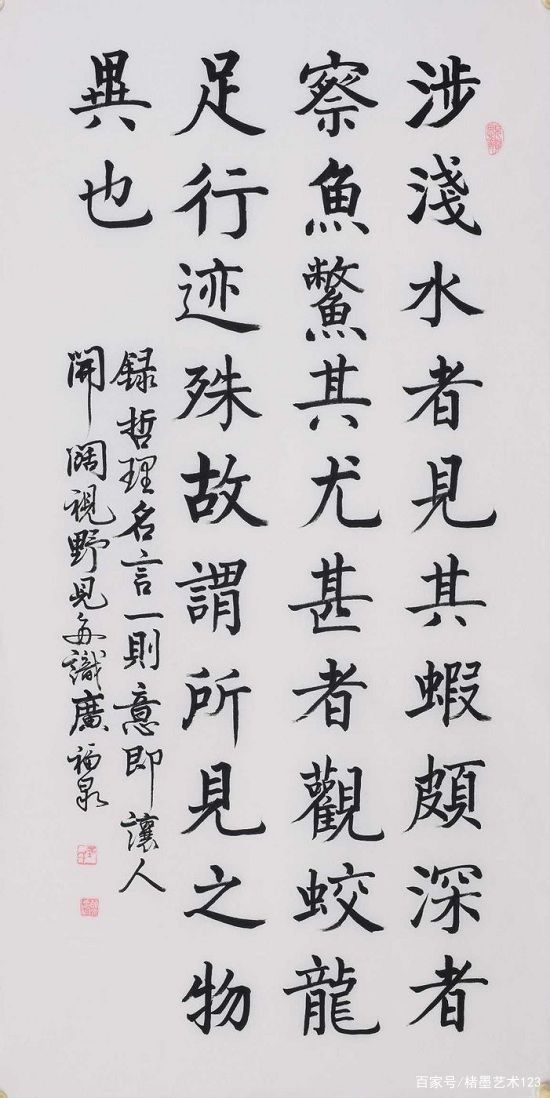 涉淺水者見其蝦頗深者
察魚鱉其尤甚者觀蛟龍
足行迹殊故謂所見之物
異也
録哲理名言一則意即讓人
開阔視野見多識廣福泉
百家号/楮墨艺术123